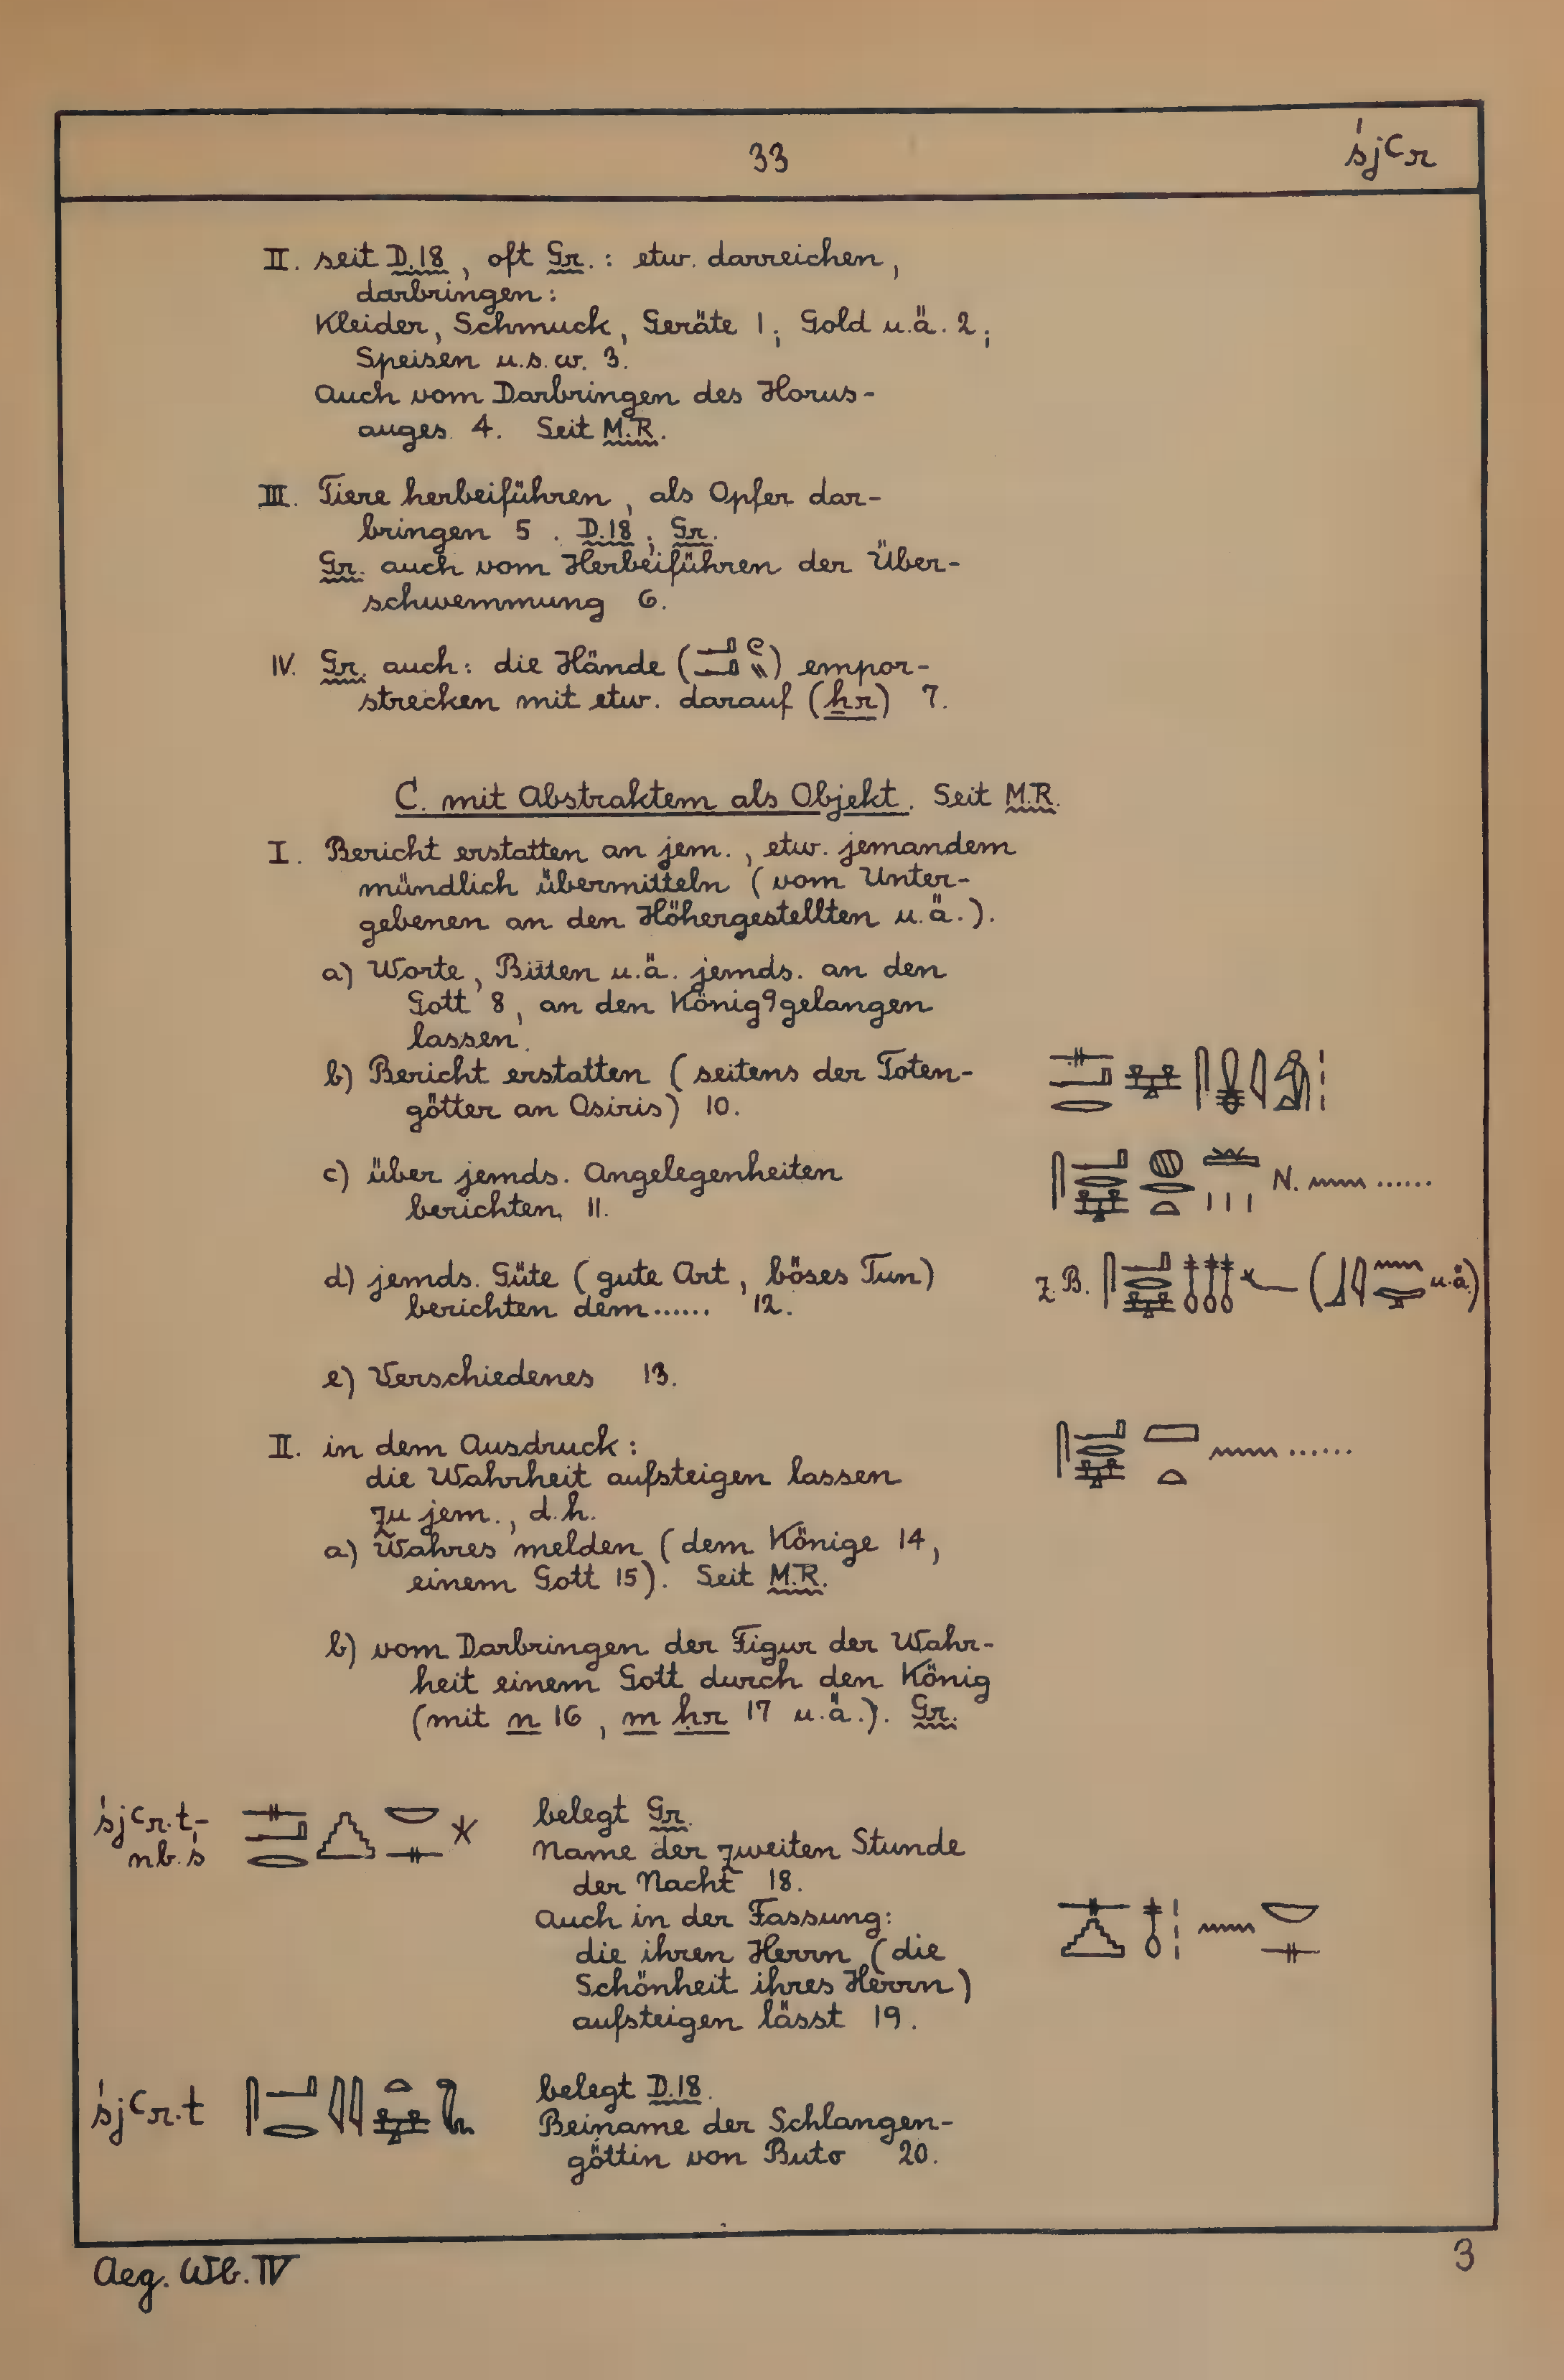 33
śjꜥr
II. seit D.18, oft Gr.: etw. darreichen,
darbringen:
Kleider, Schmuck, Geräte 1; Gold u.ä. 2;
Speisen u.s.w. 3.
Auch vom Darbringen des Horus-
auges 4. Seit M.R.
III. Tiere herbeiführen, als Opfer dar-
bringen 5. D.18; Gr.
Gr. auch vom Herbeiführen der Über-
schwemmung 6.
IV. Gr. auch: die Hände () empor-
strecken mit etw. darauf (ḥr) 7.
C. mit Abstraktem als Objekt. Seit M.R.
I. Bericht erstatten an jem., etw. jemandem
mündlich übermitteln (vom Unter-
gebenen an den Höhergestellten u.ä.).
a) Worte, Bitten u.ä. jemds. an den
Gott 8, an den König 9 gelangen
lassen.
b) Bericht erstatten (seitens der Toten-
götter an Osiris) 10.
c) über jemds. Angelegenheiten
berichten, 11.
N. ......
d) jemds. Güte (gute Art, böses Tun)
berichten dem ...... 12.
z.B. ( u.ä.)
e) Verschiedenes 13.
II. in dem Ausdruck:
......
die Wahrheit aufsteigen lassen
zu jem., d.h.
a) Wahres melden (dem Könige 14,
einem Gott 15). Seit M.R.
b) vom Darbringen der Figur der Wahr-
heit einem Gott durch den König
(mit n 16, m ḥr 17 u.ä.). Gr.
śjꜥr.t-
nb.ś
belegt Gr.
Name der zweiten Stunde
der Nacht 18.
Auch in der Fassung:
die ihren Herrn (die
Schönheit ihres Herrn)
aufsteigen lässt 19.
śjꜥr.t
belegt D.18.
Beiname der Schlangen-
göttin von Buto 20.
Aeg. Wb. IV
3